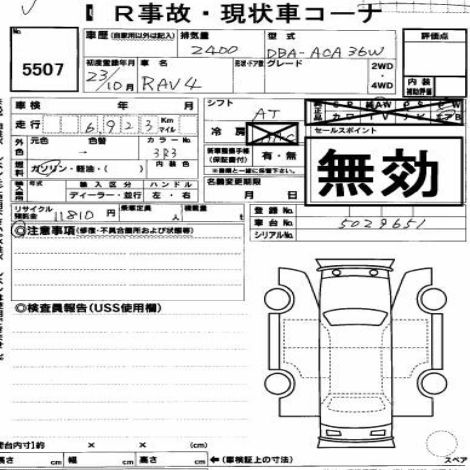 R事故・現状車コーナ
No.
5507
車歴 (自家用以外は記入)
排気量
2400
型式
DBA-ACA36W
評価点
初度登録年月
23/10月
車名
RAV4
形状・ドア数
グレード
2WD
・
4WD
内装
補助評価
車検 年 月
シフト
AT
走行
6923
Km
マイル
冷房
AAC
セールスポイント
無効
外色
元色
色替
→
カラーNo.
3R3
新車整備手帳
(保証書付)
有・無
燃料
ガソリン・軽油・( )
内装色
※書類と一緒に保管して下さい。
年式
輸入区分
ハンドル
ディーラー・並行
左・右
名義変更期限
月 日
リサイクル
預託金
11810 円
乗車定員
人
積載量
登録No.
車台No.
5029651
シリアルNo.
◎注意事項(修復・不具合箇所および状態等)
◎検査員報告(USS使用欄)
荷台内寸)約 × ×
長さ cm 幅 cm 高さ cm ←(車検証上の寸法)
スペア